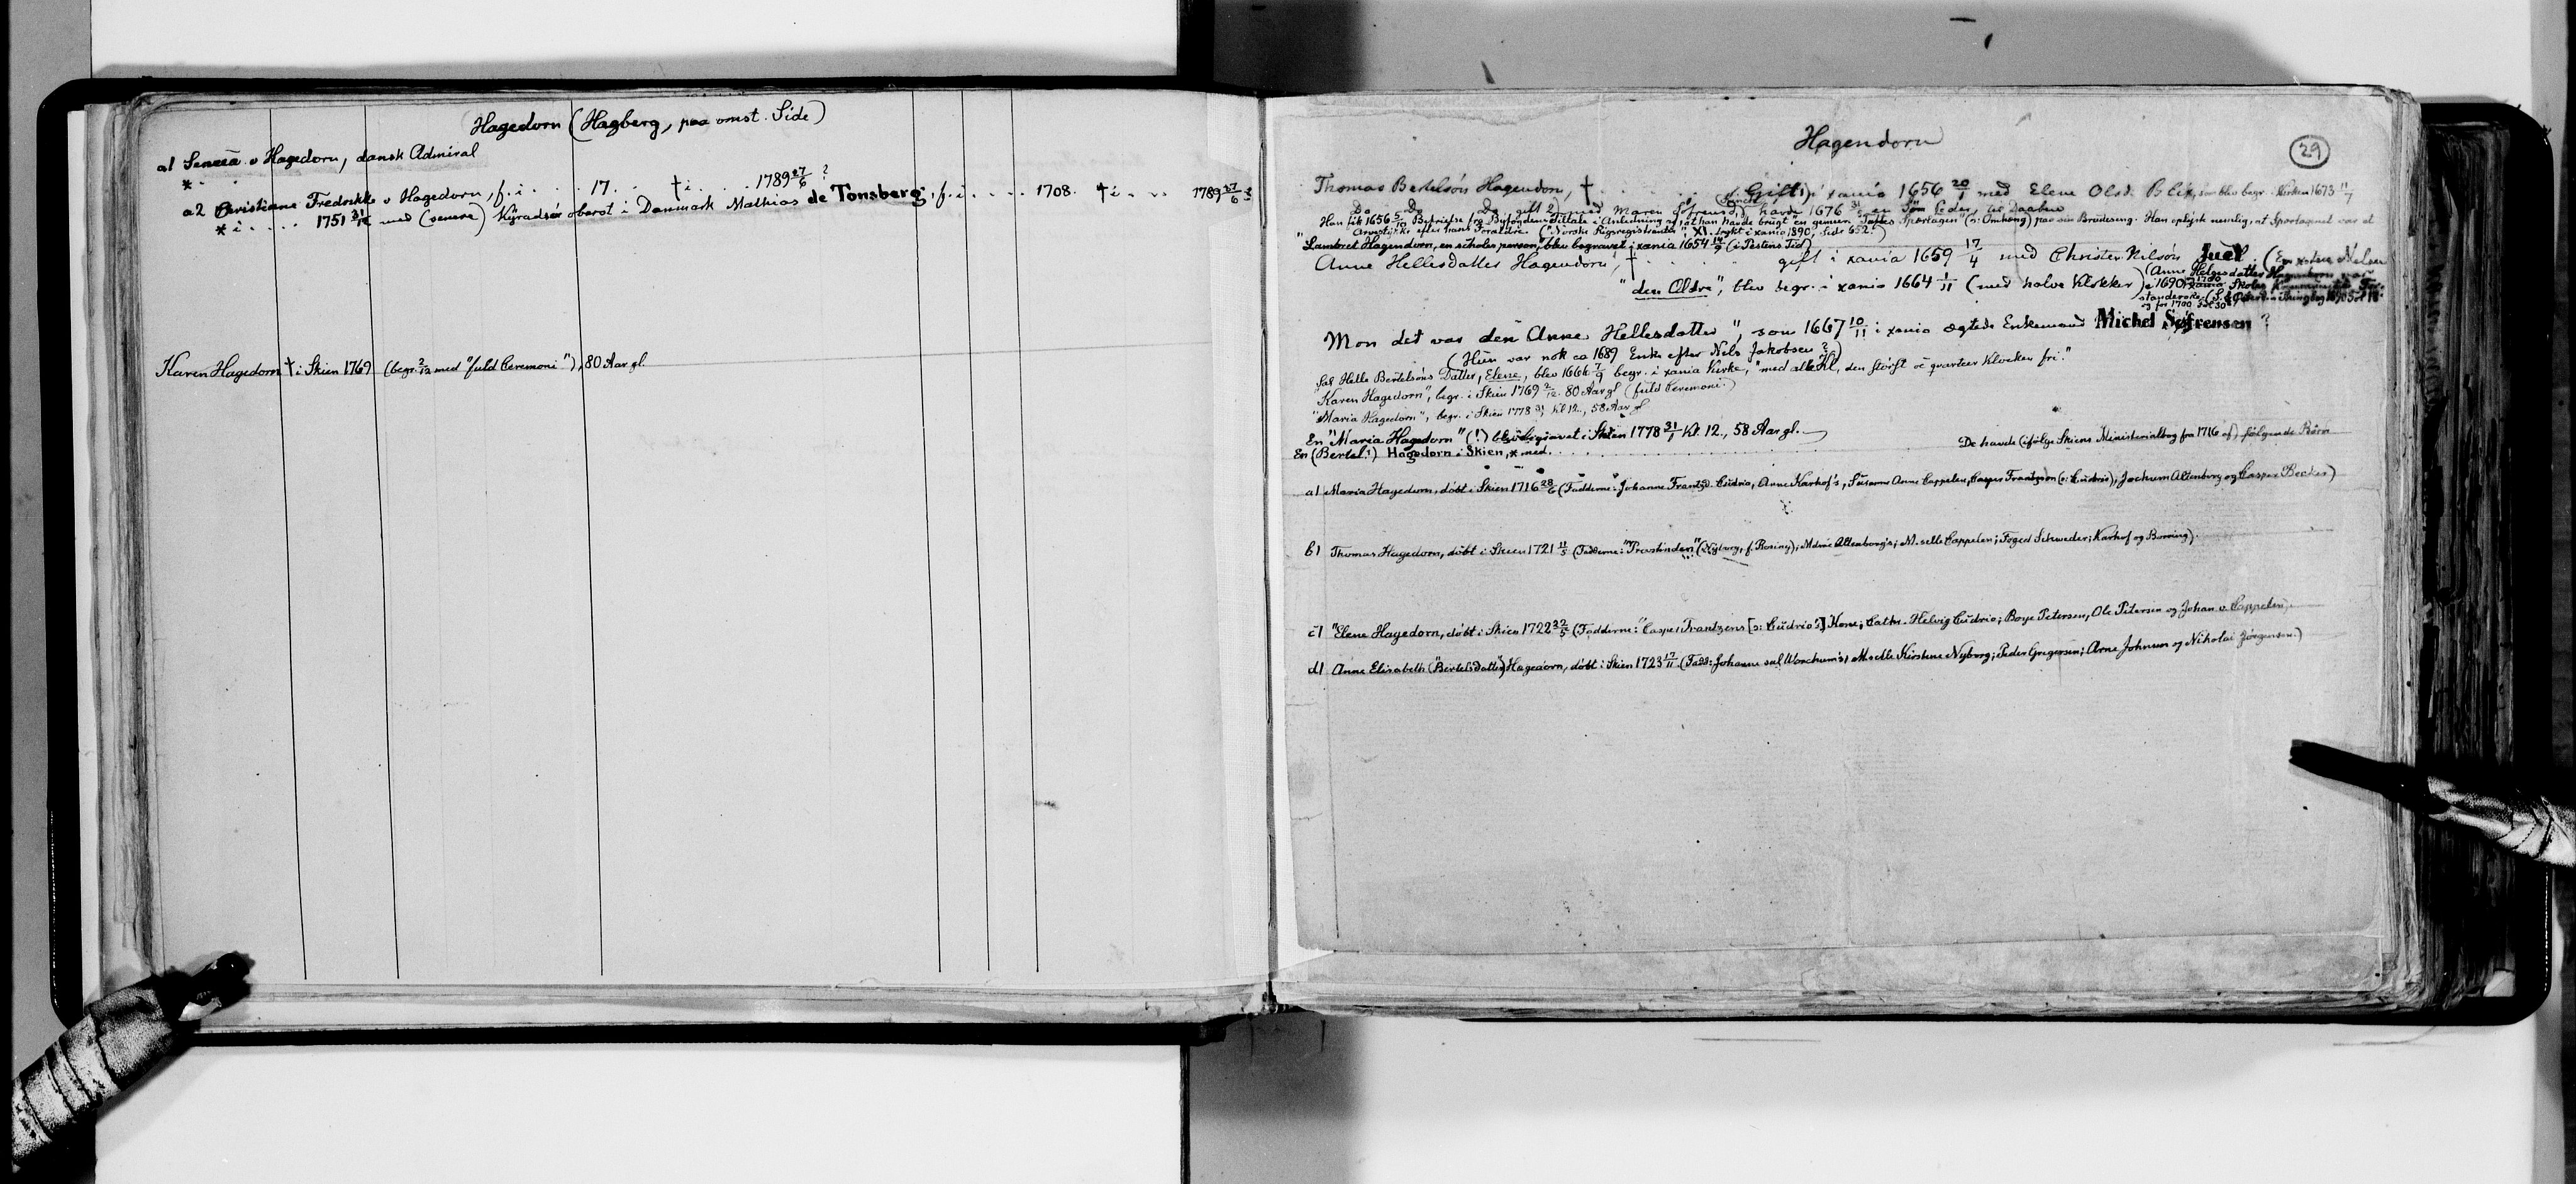 Hagedorn (Hagberg, paa omst. Side)
a1 v Hagedorn, dansk Admiral
*
a2 Christiane Fredrikke v Hagedorn, f. i . . . . 17 . . † i . . . . 1789 27/6 ?
* i . . . . 1751 31/12 med (senere) Kyradsér oberst i Danmark Mathias de Tonsberg, f. i . . . . 1708. † i . . . 1789 27/6
Karen Hagedorn † i Skien 1769 (begr. 2/12 med "fuld Ceremoni"), 80 Aar gl.
Hagendorn
29
Thomas Bertelsön Hagendorn, † . . . . . Gift 1) i xania 1656 20/1 med Elene Olsd. Blix, som blev begr. i Kirken 1673 11/7
Do Do Do gift 2) med Maren Söfrensd., havde 1676 31/5 en Sön Peder til Daaben
Han fik 1656 5/10 Byfrielse fra Byfogdens Tiltale i Anledning af at han havde brugt en gemeen Taftes Sparlagen (ɔ: Omhæng) paa sin Brudeseng. Han oplyste nemlig, at Sparlagenet var et
Arvestykke efter hans Forældre. ("Norske Rigsregistranter", XI. trykt i xania 1890, Side 652.)
"Lambret Hagendorn, en scholes person," blev begravet i xania 1654 14/9 (i Pestens Tid)
Anne Hellesdatter Hagendorn, † . . . . . gift i xania 1659 17/4 med Christen Nilsön Juel. (En xsten Nelsen
"den Aldre", blev begr. i xania 1664 1/11 (med halve Klokker) (Anne Helgesdatter Hagendorn var
e 1690 xania Skoles
og for 1700 S. 30
Mon det var den Anne Hellesdatter", som 1667 10/11 i xania ægtede Enkemand Michel Søfrensen ?
(Hun var nok ca 1689 Enke efter Nils Jakobsen ?)
Sal Helle Bertelsöns Datter, Elene, blev 1666 7/9 begr. i xania Kirke, "med alle Kl, den störst et quarteer Klocken fri."
"Karen Hagedorn", begr. i Skien 1769 2/12. 80 Aar gl (fuld Ceremoni.)
"Maria Hagedorn", begr. i Skien 1778 31/1 Kl 12., 58 Aar gl
En "Maria Hagedorn" (!) blev begravet i Skien 1778 31/1 Kl. 12., 58 Aar gl.
En (Bertel?) Hagedorn i Skien, * med. . . . . . De havde (ifölge Skiens Ministerialbog fra 1716 af) fölgende Börn
a1 Maria Hagedorn, döbt i Skien 1716 28/6 (Fadderne: Johanne Frantzd. Cüdrio, Anne Karhof's, Susanne Anne Cappelen, Casper Frantzsön (ɔ: Cüdrio), Jochum Altenborg og Casper Becker)
b1 Thomas Hagedorn, döbt i Skien 1721 11/5 (Fadderne: "Præstinden" (Nyborg, f. Rosing); Mdme Altenborg's; M.selle Cappelen; Foged Schweder; Karhof og Borning).
c1 "Elene Hagedorn, döbt i Skien 1722 22/5 (Fadderne: "Casper Frantzens [ɔ: Cüdrio's] Kone; Cathr. Helvig Cüdrio; Boye Petersen, Ole Petersen og Johan v. Cappelen).
d1 Anne Elisabeth ("Bertelsdatter") Hagedorn, döbt i Skien 1723 17/11 (Fadd: Johanne sal Worchum's; M.selle Kirstine Nyborg; Peder Gregersen; Arne Johnsen og Nikolai Jörgensen.)